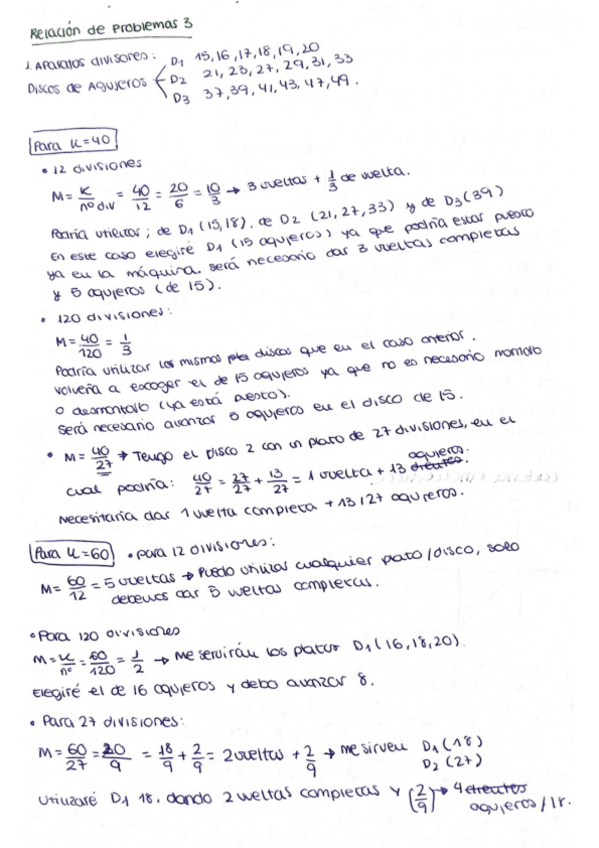 Relación de Problemas 3
1. Aparatos divisores: D1 15,16,17,18,19,20
Discos de Agujeros D2 21,23,27,29,31,33
D3 37,39,41,43,47,49.
Para K=40
• 12 divisiones
M = K/nº div = 40/12 = 20/6 = 10/3 → 3 vueltas + 1/3 de vuelta.
Podría utilizar; de D1 (15,18), de D2 (21,27,33) y de D3 (39)
En este caso elegiré D1 (15 agujeros) ya que podría estar puesto
ya en la máquina. será necesario dar 3 vueltas completas
y 5 agujeros (de 15).
• 120 divisiones:
M = 40/120 = 1/3
Podría utilizar los mismos discos que en el caso anterior.
Volvería a escoger el de 15 agujeros ya que no es necesario montarlo
o desmontarlo (ya está puesto).
Será necesario avanzar 5 agujeros en el disco de 15.
• M = 40/27 → Tengo el Disco 2 con un plato de 27 divisiones, en el
cual podría: 40/27 = 27/27 + 13/27 = 1 vuelta + 13 dientes. agujeros.
Necesitaría dar 1 vuelta completa + 13/27 agujeros.
Para K=60 • para 12 divisiones:
M = 60/12 = 5 vueltas → Puedo utilizar cualquier plato/disco, solo
debemos dar 5 vueltas completas.
• Para 120 divisiones
M = K/nº = 60/120 = 1/2 → me servirán los platos D1 (16,18,20).
Elegiré el de 16 agujeros y debo avanzar 8.
• Para 27 divisiones:
M = 60/27 = 20/9 = 18/9 + 2/9 = 2 vueltas + 2/9 → me sirven D1 (18)
D2 (27)
Utilizaré D1 18, dando 2 vueltas completas y (2/9) → 4 dientes
agujeros/18.